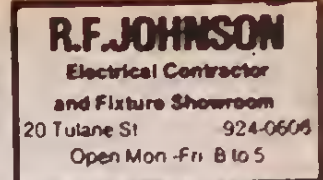 R.F. JOHNSON
Electrical Contractor
and Fixture Showroom
20 Tulane St 924-0606
Open Mon-Fri 8 to 5